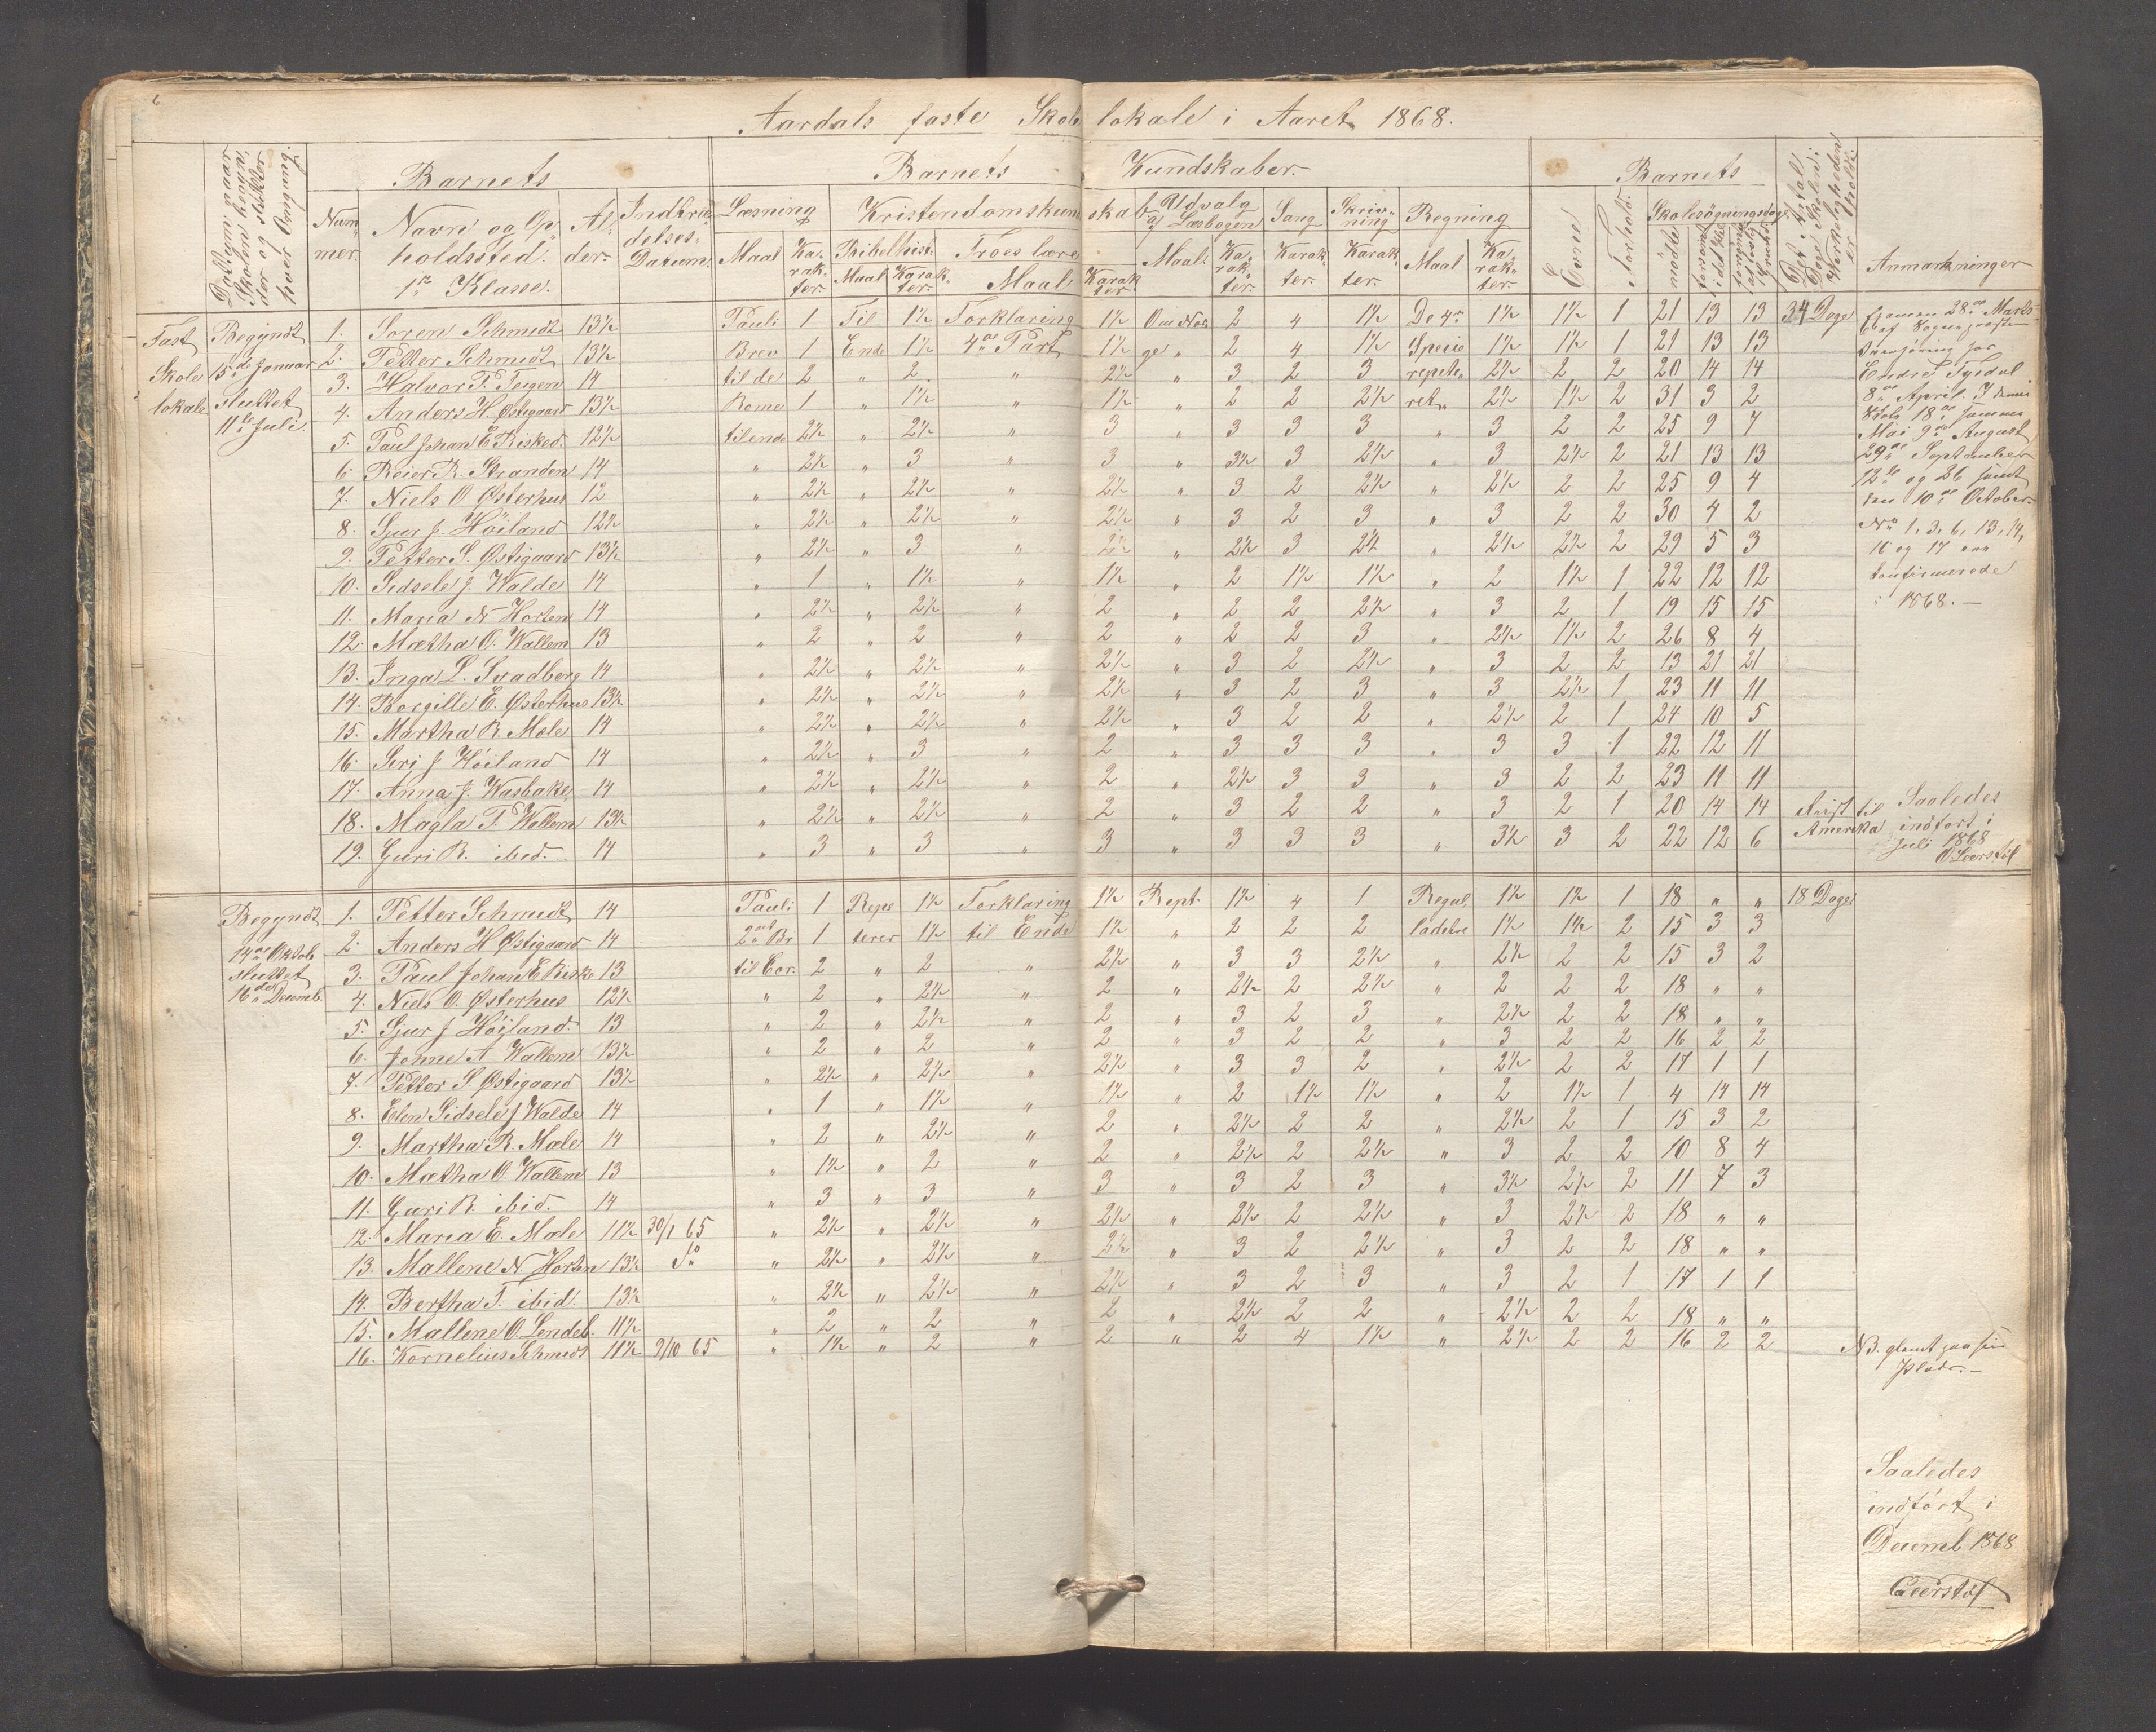 Aardals faste Skolelokale i Aaret 1868.
Barnets
Barnets Kundskaber.
Barnets
Nummer. Navn og Opholdssted. 1ste Klasse. Alder. Indtrædelses Datum. Læsning Kristendomskundskab Udvalg af Læsebogen Sang Skrivning Regning Evne Forhold. Skolesøgningsdage Anmærkninger
Maal Karakter. Bibelhist. Troeslære Maal. Karakter. Karakter. Karakter. Maal Karakter. mødte
Maal Karakter. Maal Karakter
Fast Skolelokale
Begyndt 15de Januar sluttet 11te Juli.
1. Soren Schmidt 13½ Pauli 1 Til 1½ Forklaring 1½ Om Nor 2 4 1½ De 4re 1½ 1½ 1 21 13 13 34 Dage
2. Petter Schmidt 13½ Brev 1 Ende 1½ 4de Part 1½ ge „ 2 4 1½ Specie 1½ 1½ 1 21 13 13
3. Halvor T. Teigen 14 til de 2 „ 2 „ 2½ „ 3 2 3 repete„ 2½ 2 2 20 14 14
4. Anders H. Østigaard 13½ Rome 1 „ 1½ „ 1½ „ 2 2 2½ ret„ 2½ 1½ 2 31 3 2
5. Paul Johan E. Risked. 12½ til ende 2½ „ 2½ „ 3 „ 3 3 3 „ 3 2 2 25 9 7
6. Reier R. Stranden 14 „ 2½ „ 3 „ 3 „ 3½ 3 2½ „ 3 2½ 2 21 13 13
7. Niels O Østerhus 12 „ 2½ „ 2½ „ 2½ „ 3 2 2½ „ 2½ 2 2 25 9 4
8. Sjur J. Höiland 12½ „ 2½ „ 2½ „ 2½ „ 3 2 3 „ 3 2 2 30 4 2
9. Petter S. Østigaard 13½ „ 2½ „ 3 „ 2½ „ 2½ 3 2½ „ 2½ 2½ 2 29 5 3
10. Sidsele J. Walde 14 „ 1 „ 1½ „ 1½ „ 2 1½ 1½ „ 2 1½ 1 22 12 12
11. Maria N Horten 14 „ 2½ „ 2½ „ 2 „ 2 2 2½ „ 3 2 1 19 15 15
12. Mætha O. Wallem 13 „ 2 „ 2 „ 2 „ 2 2 3 „ 2½ 1½ 2 26 8 4
13. Inga L. Svadberg 14 „ 2½ „ 2½ „ 2½ „ 3 2 2½ „ 3 2 2 13 21 21
14. Borgille E. Østerhus 13½ „ 2½ „ 2½ „ 2½ „ 3 2 3 „ 3 2½ 1 23 11 11
15. Martha R. Mæle 14 „ 2½ „ 2½ „ 2½ „ 3 2 2 „ 2½ 2 1 24 10 5
16. Seri J Höiland 14 „ 2½ „ 3 „ 2 „ 3 3 3 „ 3 3 1 22 12 11
17. Anna J. Wasbake 14 „ 2½ „ 2½ „ 2 „ 2½ 3 3 „ 3 2 2 23 11 11
18. Magla T. Wallem 13½ „ 2½ „ 2½ „ 2 „ 3 2 2 „ 3 2 1 20 14 14
19. Guri R. ibid. 14 „ 3 „ 3 „ 3 „ 3 3 3 „ 3½ 3 2 22 12 6
Examen 28de Marts
Endre Tjedal
8de April
18de samme
Mai 9de August
29de September
12te og 26 samt
den 10de October
No 1, 3, 6, 13, 14,
16 og 17 ere
konfirmerede
i 1868.—
til Amerika
Saaledes indført i Juli 1868
Begyndt 14de Oktob sluttet 16de Decemb.
1. Petter Schmidt 14 Pauli 1 Repe 1½ Forklaring 1½ Rept. 1½ 4 1 Regul 1½ 1½ 1 18 „ „ 18 Dage
2. Anders H Østigaard 14 2det Br 1 terer 1½ til Ende 1½ „ 2 2 2 ladetri 1½ 1½ 2 15 3 3
3. Paul Johan E Riske 13 til Cor. 2 „ 2 „ 2½ „ 3 3 2½ „ 2½ 2 2 15 3 2
4. Niels O. Østerhus 12½ „ 2 „ 2½ „ 2 „ 2½ 2 2½ „ 2 2 2 18 „ „
5. Sjur J Höiland. 13 „ 2 „ 2½ „ 2 „ 3 2 3 „ 2½ 2 2 18 „ „
6. Jonne A Wallem 13½ „ 2 „ 2 „ 2 „ 3 2 2 „ 3 2 2 16 2 2
7. Petter S Østigaard 13½ „ 2½ „ 2½ „ 2½ „ 3 3 2 „ 2½ 2 2 17 1 1
8. Elen Sidsele J Walde 14 „ 1 „ 1½ „ 1½ „ 2 1½ 1½ „ 2 1½ 1 4 14 14
9. Martha R. Mæle 14 „ 2 „ 2½ „ 2 „ 2½ 2 2 „ 2½ 2 1 15 3 2
10. Mætha O. Wallem 13 „ 1½ „ 2 „ 2 „ 2½ 2 2½ „ 3 2 2 10 8 4
11. Guri R. ibid. 14 „ 3 „ 3 „ 3 „ 3 2 3 „ 3½ 2½ 2 11 7 3
12. Maria E. Mæle 11½ 30/1 65 „ 2½ „ 2½ „ 2½ „ 2½ 2 2½ „ 3 2½ 2 18 „ „
13. Mallene N. Horten 13½ do „ 2½ „ 2½ „ 2½ „ 3 2 2½ „ 3 2 2 18 „ „
14. Bertha T. ibid. 13½ „ 2½ „ 2½ „ 2½ „ 3 2 3 „ 3 2 1 17 1 1
15. Mallene O. Lendeb. 11½ „ 2 „ 2 „ 2 „ 2½ 2 2 „ 2½ 2 2 18 „ „
16. Kornelius Schmidt 11½ 9/10 65 „ 1½ „ 2 „ 2 „ 2 4 1½ „ 2½ 2 2 16 2 2
NB. glemt paa sin Plads.—
Saaledes
indført i
Decemb 1868